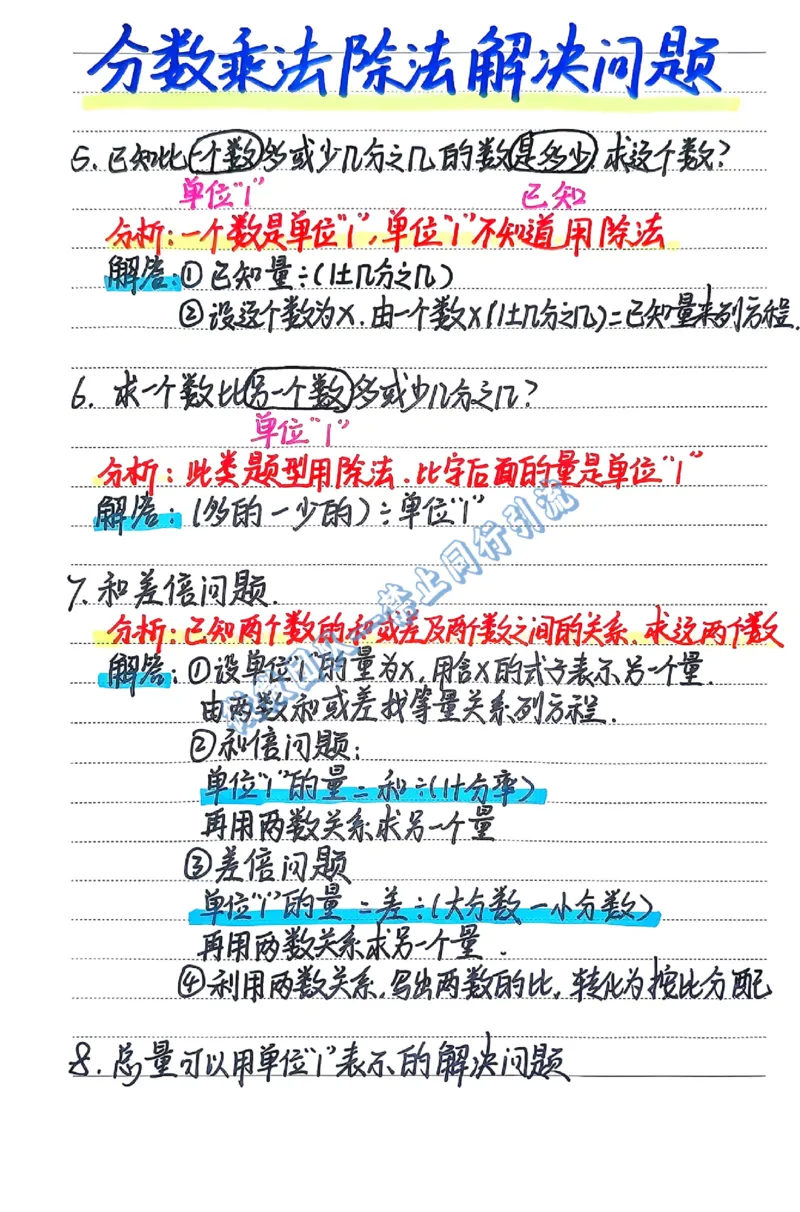 分数乘法除法解决问题
5.已知比一个数多或少几分之几的数是多少,求这个数?
单位"1" 已知
分析:一个数是单位"1",单位"1"不知道用除法
解答:①已知量÷(1±几分之几)
②设这个数为x,由一个数×(1±几分之几)=已知量来列方程.
6. 求一个数比另一个数多或少几分之几?
单位"1"
分析:此类题型用除法.比字后面的量是单位"1"
解答:(多的-少的)÷单位"1"
7.和差倍问题.
分析:已知两个数的和或差及两个数之间的关系,求这两个数
解答:①设单位"1"的量为x,用含x的式子表示另一个量.
由两数和或差找等量关系列方程.
②和倍问题:
单位"1"的量=和÷(1+分率)
再用两数关系求另一个量
③差倍问题
单位"1"的量=差÷(大分数-小分数)
再用两数关系求另一个量.
④利用两数关系,写出两数的比,转化为按比分配
8.总量可以用单位"1"表示的解决问题
禁止同行引流